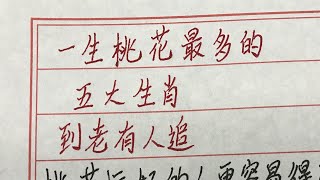 一生桃花最多的
五大生肖
到老有人追